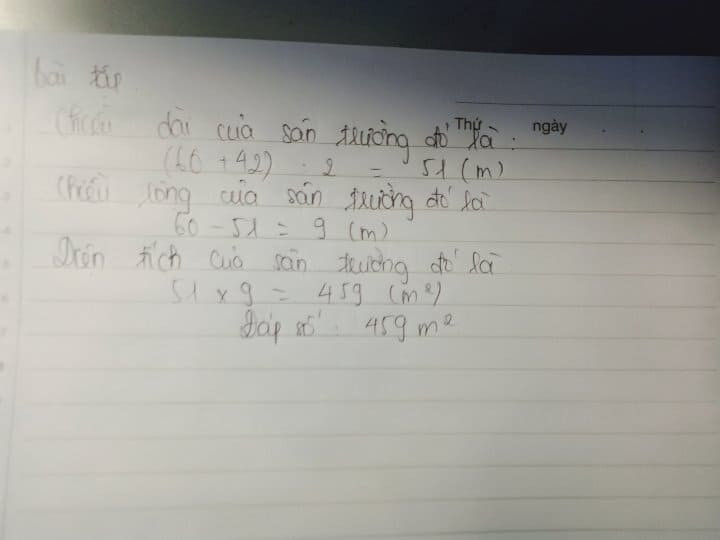 bài tập
Thứ ngày . .
Chiều dài của sân trường đó là :
(60 + 42) : 2 = 51 (m)
Chiều rộng của sân trường đó là
60 - 51 = 9 (m)
Diện tích của sân trường đó là
51 x 9 = 459 (m²)
Đáp số : 459 m²